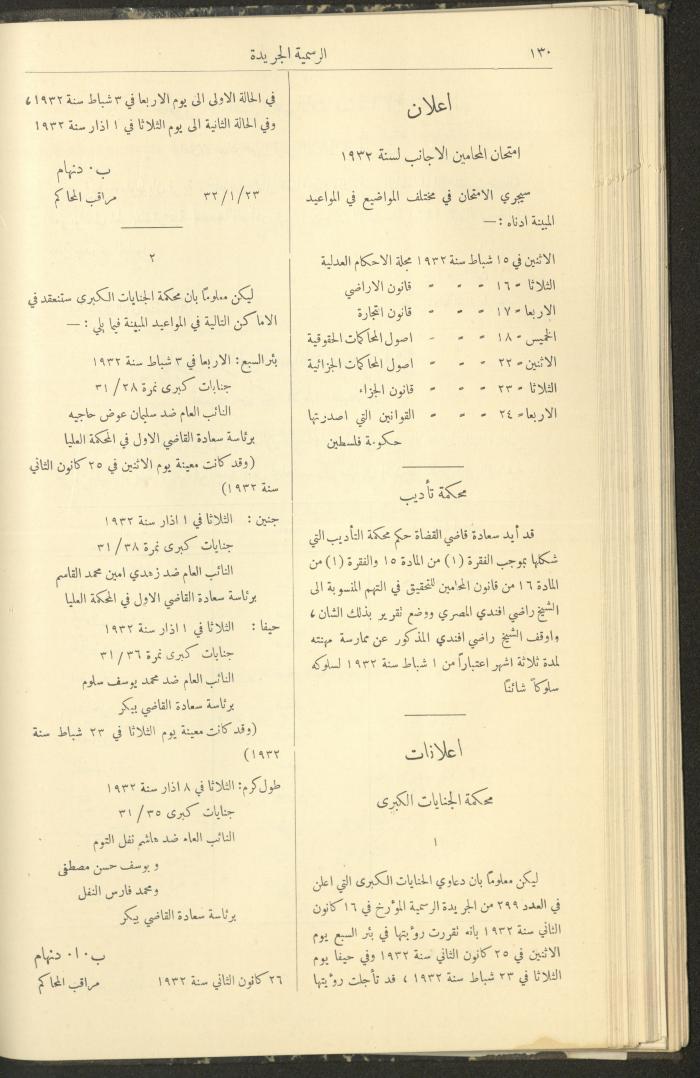 ١٣٠
الرسمية الجريدة
اعلان
امتحان المحامين الاجانب لسنة ١٩٣٢
سيجري الامتحان في مختلف المواضيع في المواعيد
المبينة ادناه : —
الاثنين في ١٥ شباط سنة ١٩٣٢ مجلة الاحكام العدلية
الثلاثا - ١٦ - - - قانون الاراضي
الاربعا - ١٧ - - - قانون التجارة
الخميس - ١٨ - - - اصول المحاكمات الحقوقية
الاثنين - ٢٢ - - - اصول المحاكمات الجزائية
الثلاثا - ٢٣ - - - قانون الجزاء
الاربعا - ٢٤ - - - القوانين التي اصدرتها
حكومة فلسطين
محكمة تأديب
قد أيد سعادة قاضي القضاة حكم محكمة التأديب التي
شكلها بموجب الفقرة (١) من المادة ١٥ والفقرة (١) من
المادة ١٦ من قانون المحامين للتحقيق في التهم المنسوبة الى
الشيخ راضي افندي المصري ووضع تقرير بذلك الشان ،
واوقف الشيخ راضي افندي المذكور عن ممارسة مهنته
لمدة ثلاثة اشهر اعتباراً من ١ شباط سنة ١٩٣٢ لسلوكه
سلوكاً شائناً
اعلانات
محكمة الجنايات الكبرى
١
ليكن معلوماً بان دعاوي الجنايات الكبرى التي اعلن
في العدد ٢٩٩ من الجريدة الرسمية المؤرخ في ١٦ كانون
الثاني سنة ١٩٣٢ بانه تقررت رؤيتها في بئر السبع يوم
الاثنين في ٢٥ كانون الثاني سنة ١٩٣٢ وفي حيفا يوم
الثلاثا في ٢٣ شباط سنة ١٩٣٢ ، قد تأجلت رؤيتها
في الحالة الاولى الى يوم الاربعا في ٣ شباط سنة ١٩٣٢ ،
وفي الحالة الثانية الى يوم الثلاثا في ١ اذار سنة ١٩٣٢
ب٠ دنهام
٣٢/١/٢٣ مراقب المحاكم
٢
ليكن معلوماً بان محكمة الجنايات الكبرى ستنعقد في
الاماكن التالية في المواعيد المبينة فيما يلي : —
بئر السبع : الاربعا في ٣ شباط سنة ١٩٣٢
جنايات كبرى نمرة ٣١/٢٨
النائب العام ضد سليمان عوض حاجيه
برئاسة سعادة القاضي الاول في المحكمة العليا
(وقد كانت معينة يوم الاثنين في ٢٥ كانون الثاني
سنة ١٩٣٢)
جنين : الثلاثا في ١ اذار سنة ١٩٣٢
جنايات كبرى نمرة ٣١/٣٨
النائب العام ضد زهدي امين محمد القاسم
برئاسة سعادة القاضي الاول في المحكمة العليا
حيفا : الثلاثا في ١ اذار سنة ١٩٣٢
جنايات كبرى نمرة ٣١/٣٦
النائب العام ضد محمد يوسف سلوم
برئاسة سعادة القاضي بيكر
(وقد كانت معينة يوم الثلاثا في ٢٣ شباط سنة
١٩٣٢)
طولكرم : الثلاثا في ٨ اذار سنة ١٩٣٢
جنايات كبرى ٣١/٣٥
النائب العام ضد هاشم نفل التوم
و يوسف حسن مصطفى
ومحمد فارس النفل
برئاسة سعادة القاضي بيكر
ب٠ا٠ دنهام
٢٦ كانون الثاني سنة ١٩٣٢ مراقب المحاكم